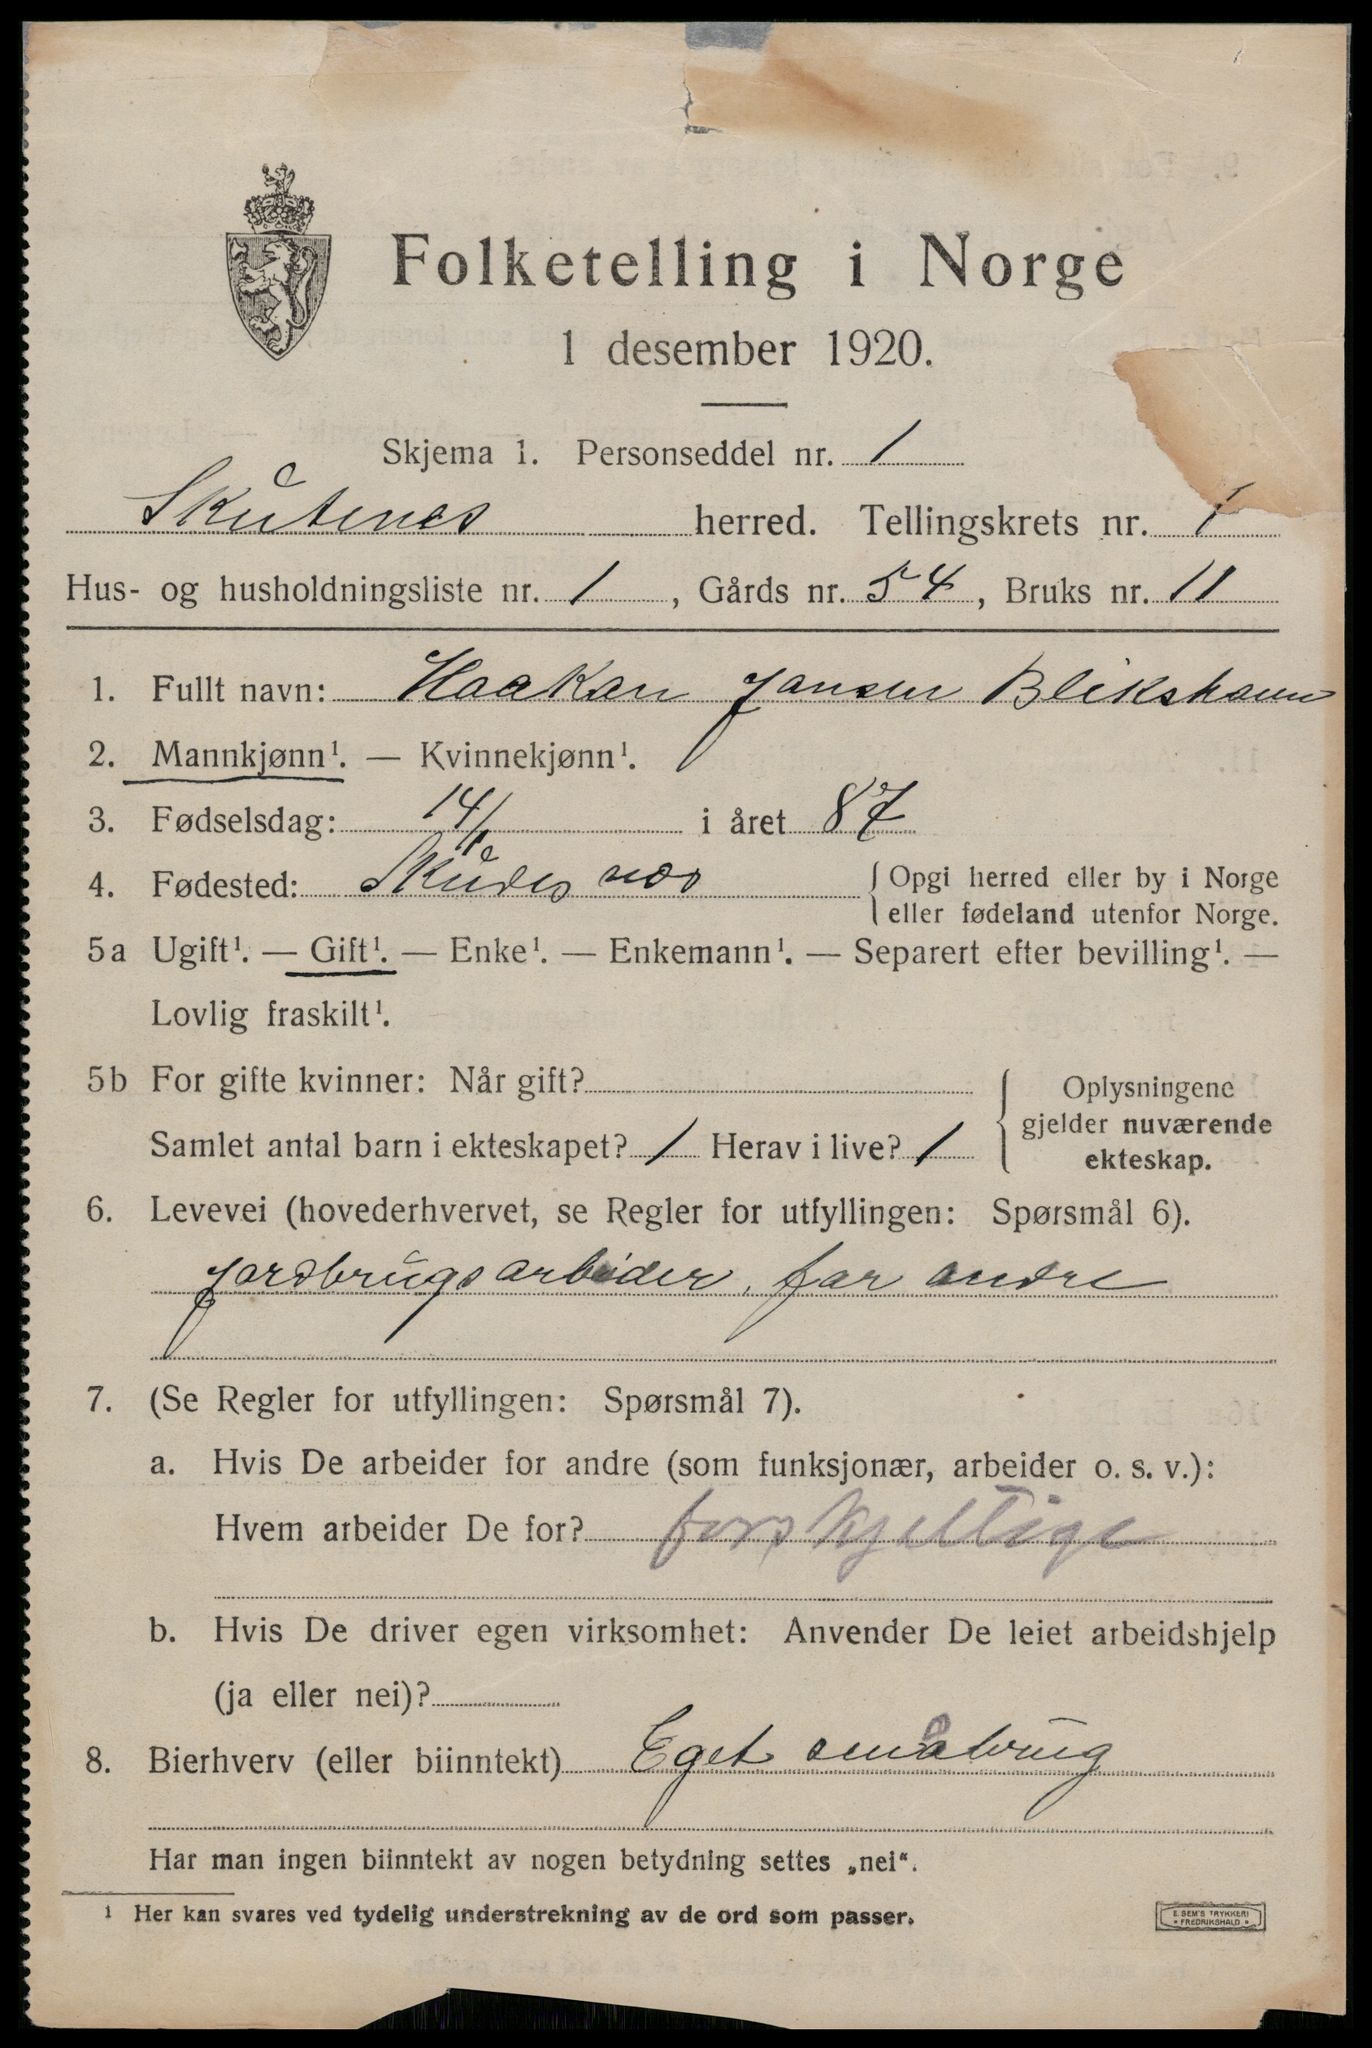 Folketelling i Norge
1 desember 1920.
Skjema 1. Personseddel nr. 1
Skutenes herred. Tellingskrets nr. 1
Hus- og husholdningsliste nr. 1, Gårds nr. 54, Bruks nr. 11
1. Fullt navn: Haakan Jansen Blikshavn
2. Mannkjønn¹. — Kvinnekjønn¹.
3. Fødselsdag: 14/1 i året 87
4. Fødested: Skudesnes { Opgi herred eller by i Norge
eller fødeland utenfor Norge.
5a Ugift¹. — Gift¹. — Enke¹. — Enkemann¹. — Separert efter bevilling¹. —
Lovlig fraskilt¹.
5b For gifte kvinner: Når gift?
Samlet antal barn i ekteskapet? 1 Herav i live? 1
Oplysningene
gjelder nuværende
ekteskap.
6. Levevei (hovederhvervet, se Regler for utfyllingen: Spørsmål 6).
Jordbrugsarbeider, for andre
7. (Se Regler for utfyllingen: Spørsmål 7).
a. Hvis De arbeider for andre (som funksjonær, arbeider o. s. v.):
Hvem arbeider De for? forskjellige
b. Hvis De driver egen virksomhet: Anvender De leiet arbeidshjelp
(ja eller nei)?
8. Bierhverv (eller biinntekt) Eget småbrug
Har man ingen biinntekt av nogen betydning settes „nei“.
¹ Her kan svares ved tydelig understrekning av de ord som passer.
E. SEM'S TRYKKERI
* FREDRIKSHALD *